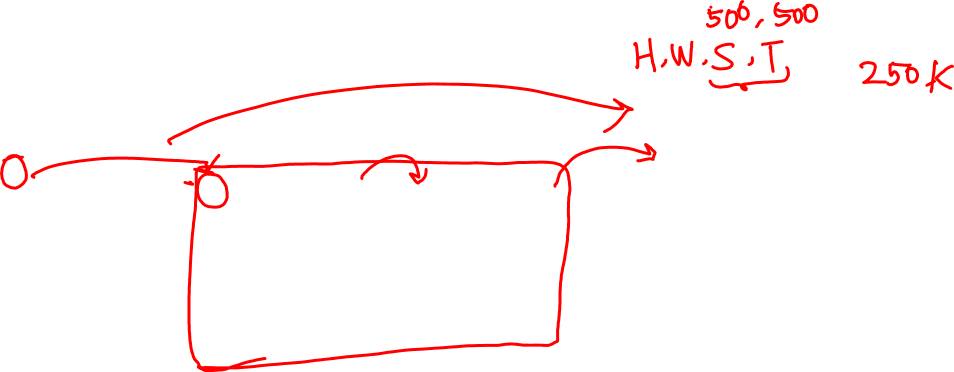 500, 500
H, W, S, T 250K
O
O